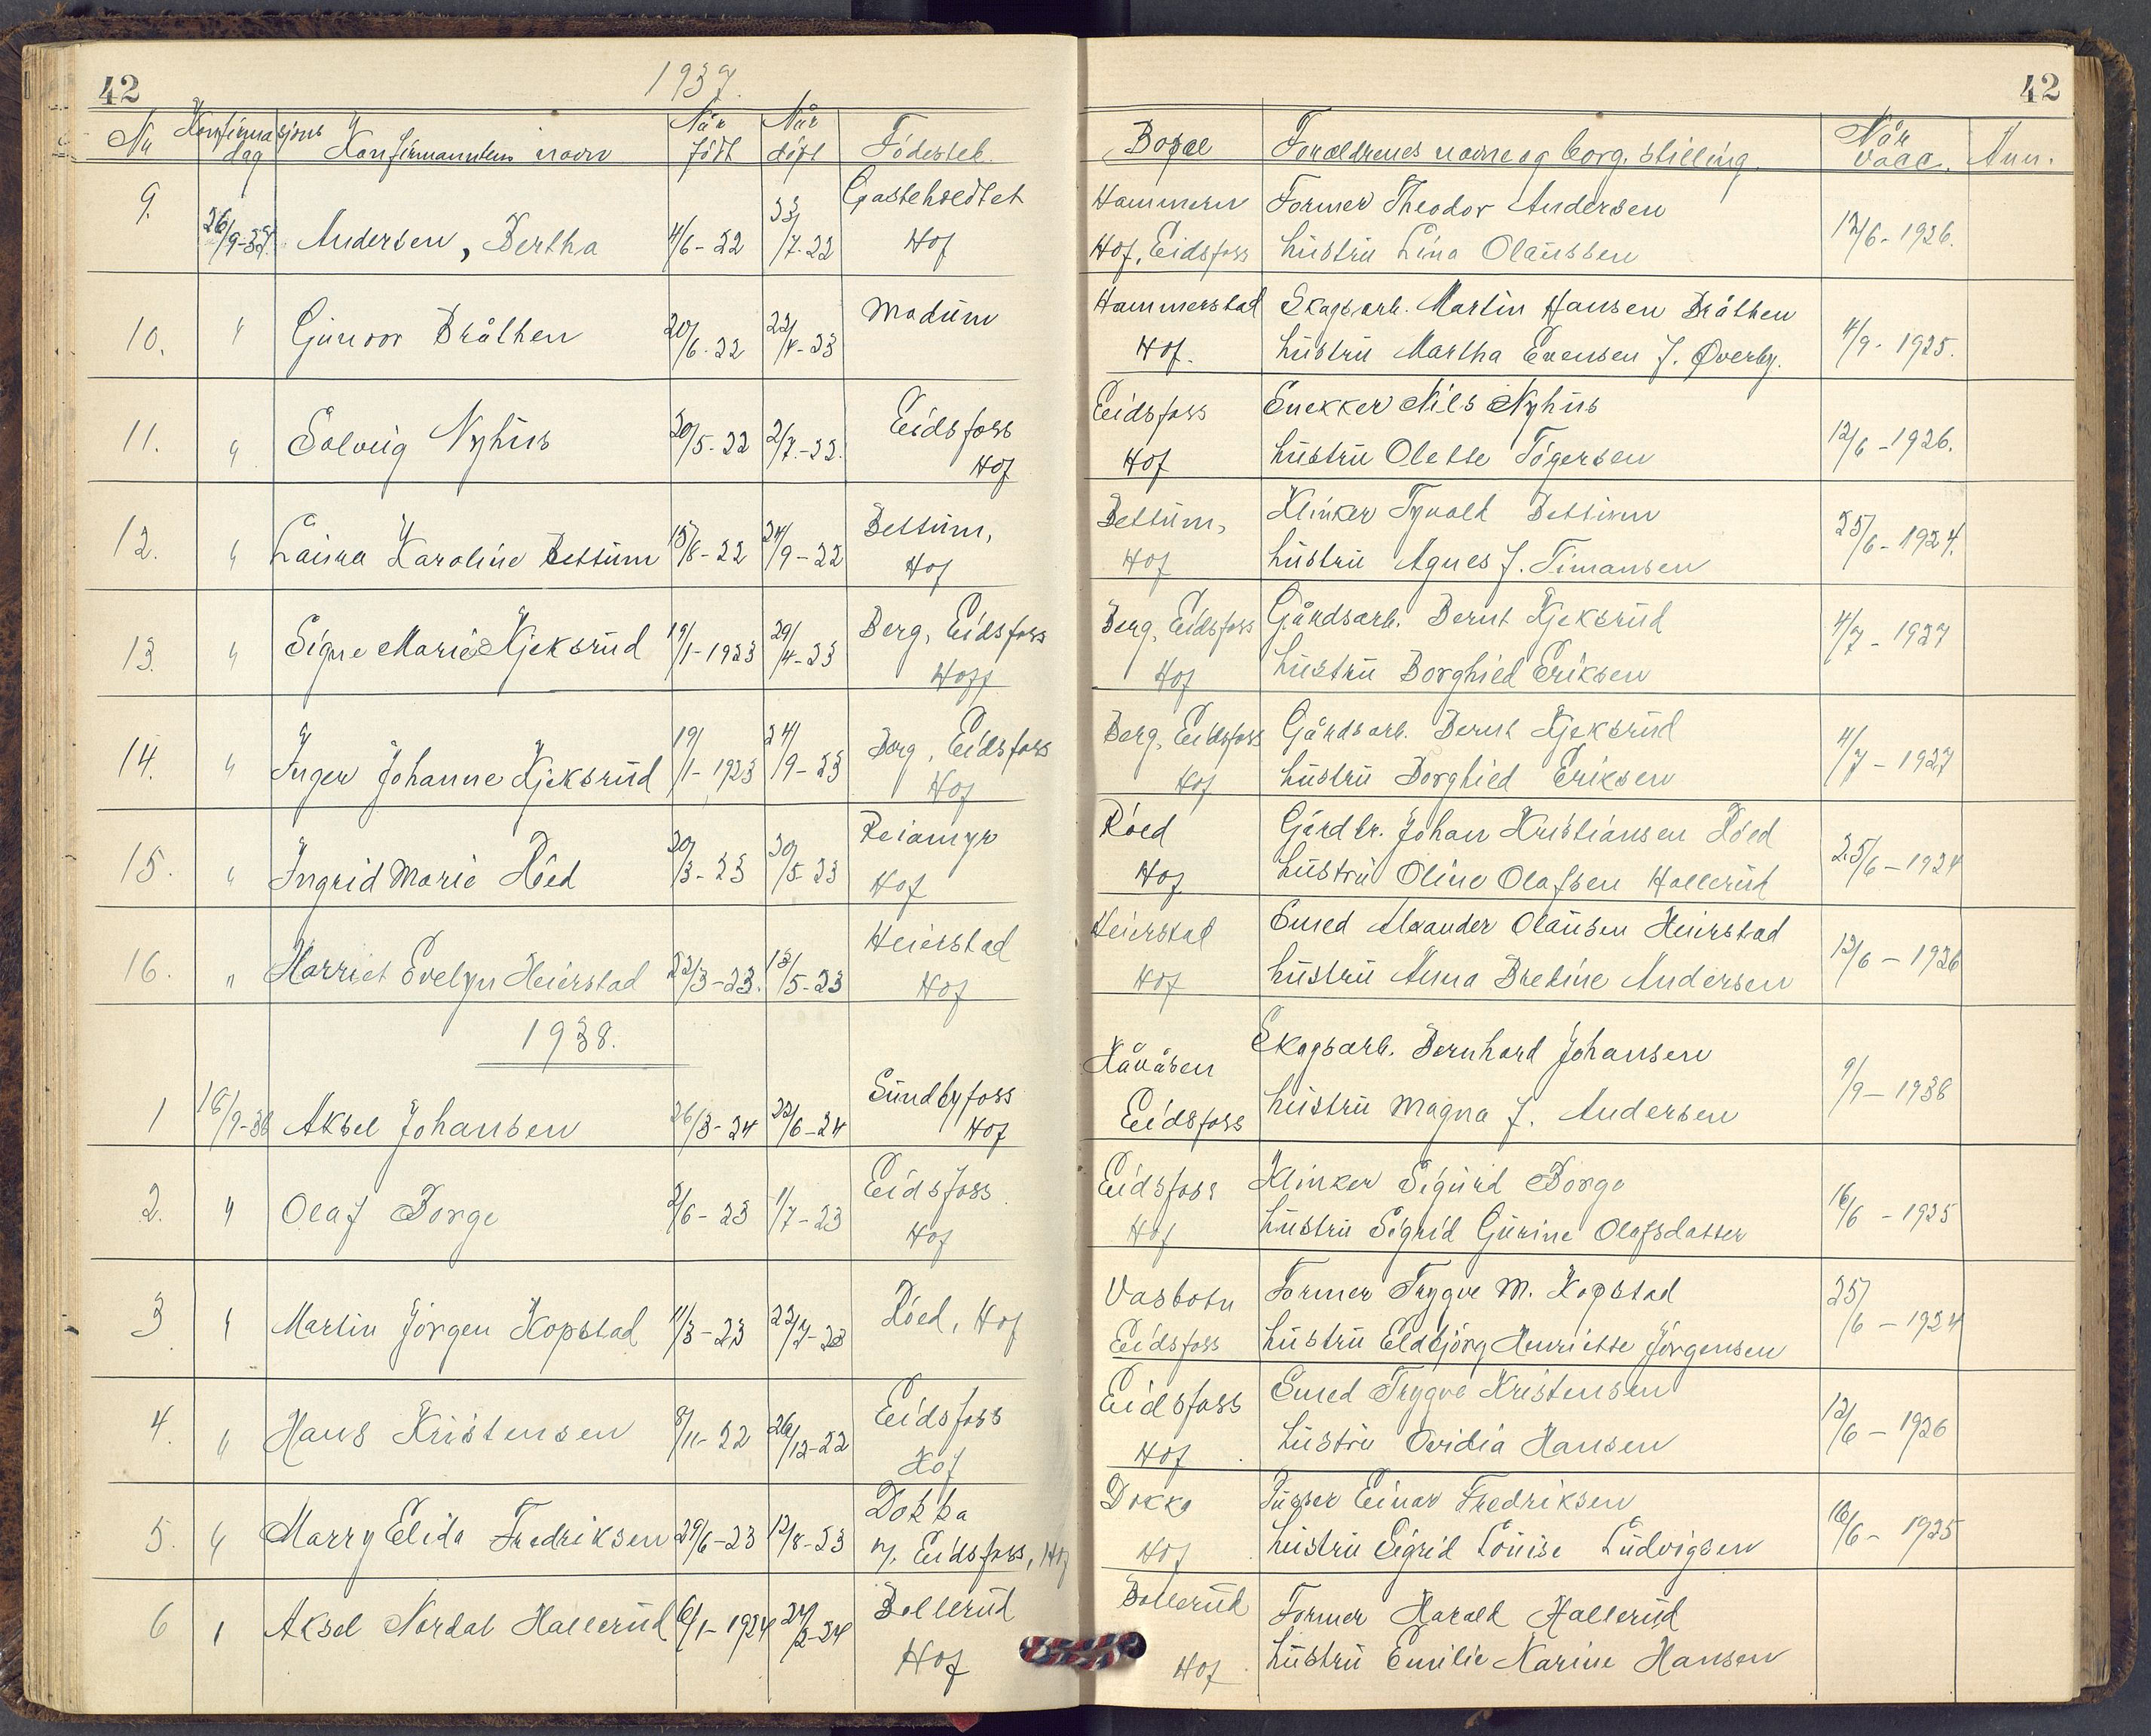 42
1937.
42
Nr Konfirmasjons dag Konfirmantens navn Når født Når døpt Fødested.
Bopæl Foreldrenes navne og borg. stilling. Når vacc. Anm.
9. 26/9-37. Andersen, Bertha 4/6-22 23/7-22 Hof
Hammern Former Theodor Andersen 12/6-1926.
Hof, Eidsfoss hustru Lina Olaussen
10. " Gunvor Bråthen 20/6-22 22/4-23 Modum
Hammerstad Skogsarb. Martin Hansen Bråthen 4/9-1925.
Hof. hustru Martha Evensen f. Øverby.
11. " Solveig Nyhus 20/5-22 2/7-22. Eidsfoss
Hof
Eidsfoss Snekker Nils Nyhus 12/6-1926.
Hof hustru Olette Tøgersen
12. " Laura Karoline Bettum 15/8-22 24/9-22 Bettum,
Hof
Bettum, Klinker Tyvald Bettum 25/6-1924.
Hof hustru Agnes f. Timansen
13. " Signe Marie Kjeksrud 19/1-1923 29/4-23 Berg, Eidsfoss
Hoff
Berg, Eidsfoss Gårdsarb. Bernt Kjeksrud 4/7-1927
Hof hustru Borghild Eriksen
14. " Inger Johanne Kjeksrud 19/1-1923 24/9-23 Berg, Eidsfoss
Hof
Berg, Eidsfoss Gårdsarb. Bernt Kjeksrud 4/7-1927
Hof hustru Borghild Eriksen
15. " Ingrid Marie Röed 20/3-23 30/5-23 Reiamyr
Hof
Röed Gårdbr. Johan Kristiansen Röed 25/6-1924
Hof hustru Oline Olafsen Hallerud
16. " Harriet Evelyn Heierstad 22/3-23. 13/5-23 Heierstad
Hof
Heierstad Smed Alexander Olausen Heierstad 12/6-1926
Hof hustru Anna Bretine Andersen
1938.
1 18/9-38 Aksel Johansen 26/3-24 22/6-24 Sundbyfoss
Hof
Skogsarb. Bernhard Johansen 9/9-1938
Eidsfoss hustru Magna f. Andersen
2. " Olaf Borge 2/6-23 1/7-23 Eidsfoss
Hof
Eidsfoss Klinker Sigurd Borge 16/6-1925
Hof hustru Sigrid Gurine Olafsdatter
3 " Martin Jörgen Kopstad 11/3-23 22/7-23 Röed, Hof
Vasbotn Former Trygve M. Kopstad 25/6-1924
Eidsfoss hustru Eldbjörg Henriette Jörgensen
4. " Hans Kristensen 8/11-22 26/12-22 Eidsfoss
Hof
Eidsfoss Smed Trygve Kristensen 12/6-1926
Hof hustru Ovidia Hansen
5. " Marry Elida Fredriksen 29/6-23 12/8-23 Dokka
n/. Eidsfoss, Hof
Dokka Pusser Einar Fredriksen 16/6-1925
Hof hustru Sigrid Louise Ludvigsen
6 " Aksel Nordal Hallerud 6/1-1924 24/2-24 Bollerud
Hof
Bollerud Former Harald Hallerud
Hof hustru Emilie Narine Hansen